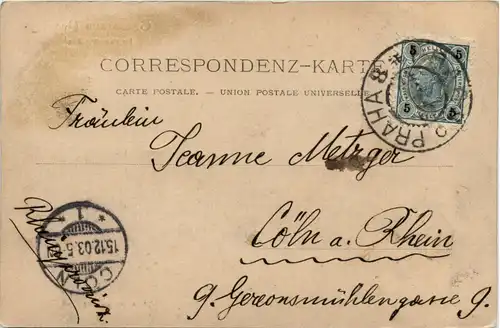 CORRESPONDENZ-KARTE
CARTE POSTALE. – UNION POSTALE UNIVERSELLE.
5 5
5 5
PRAHA 8
Fräulein
Jeanne Metzger
Cöln a. Rhein
9. Gereonsmühlengasse 9.
* 1 *
15.12.03.5
CÖLN